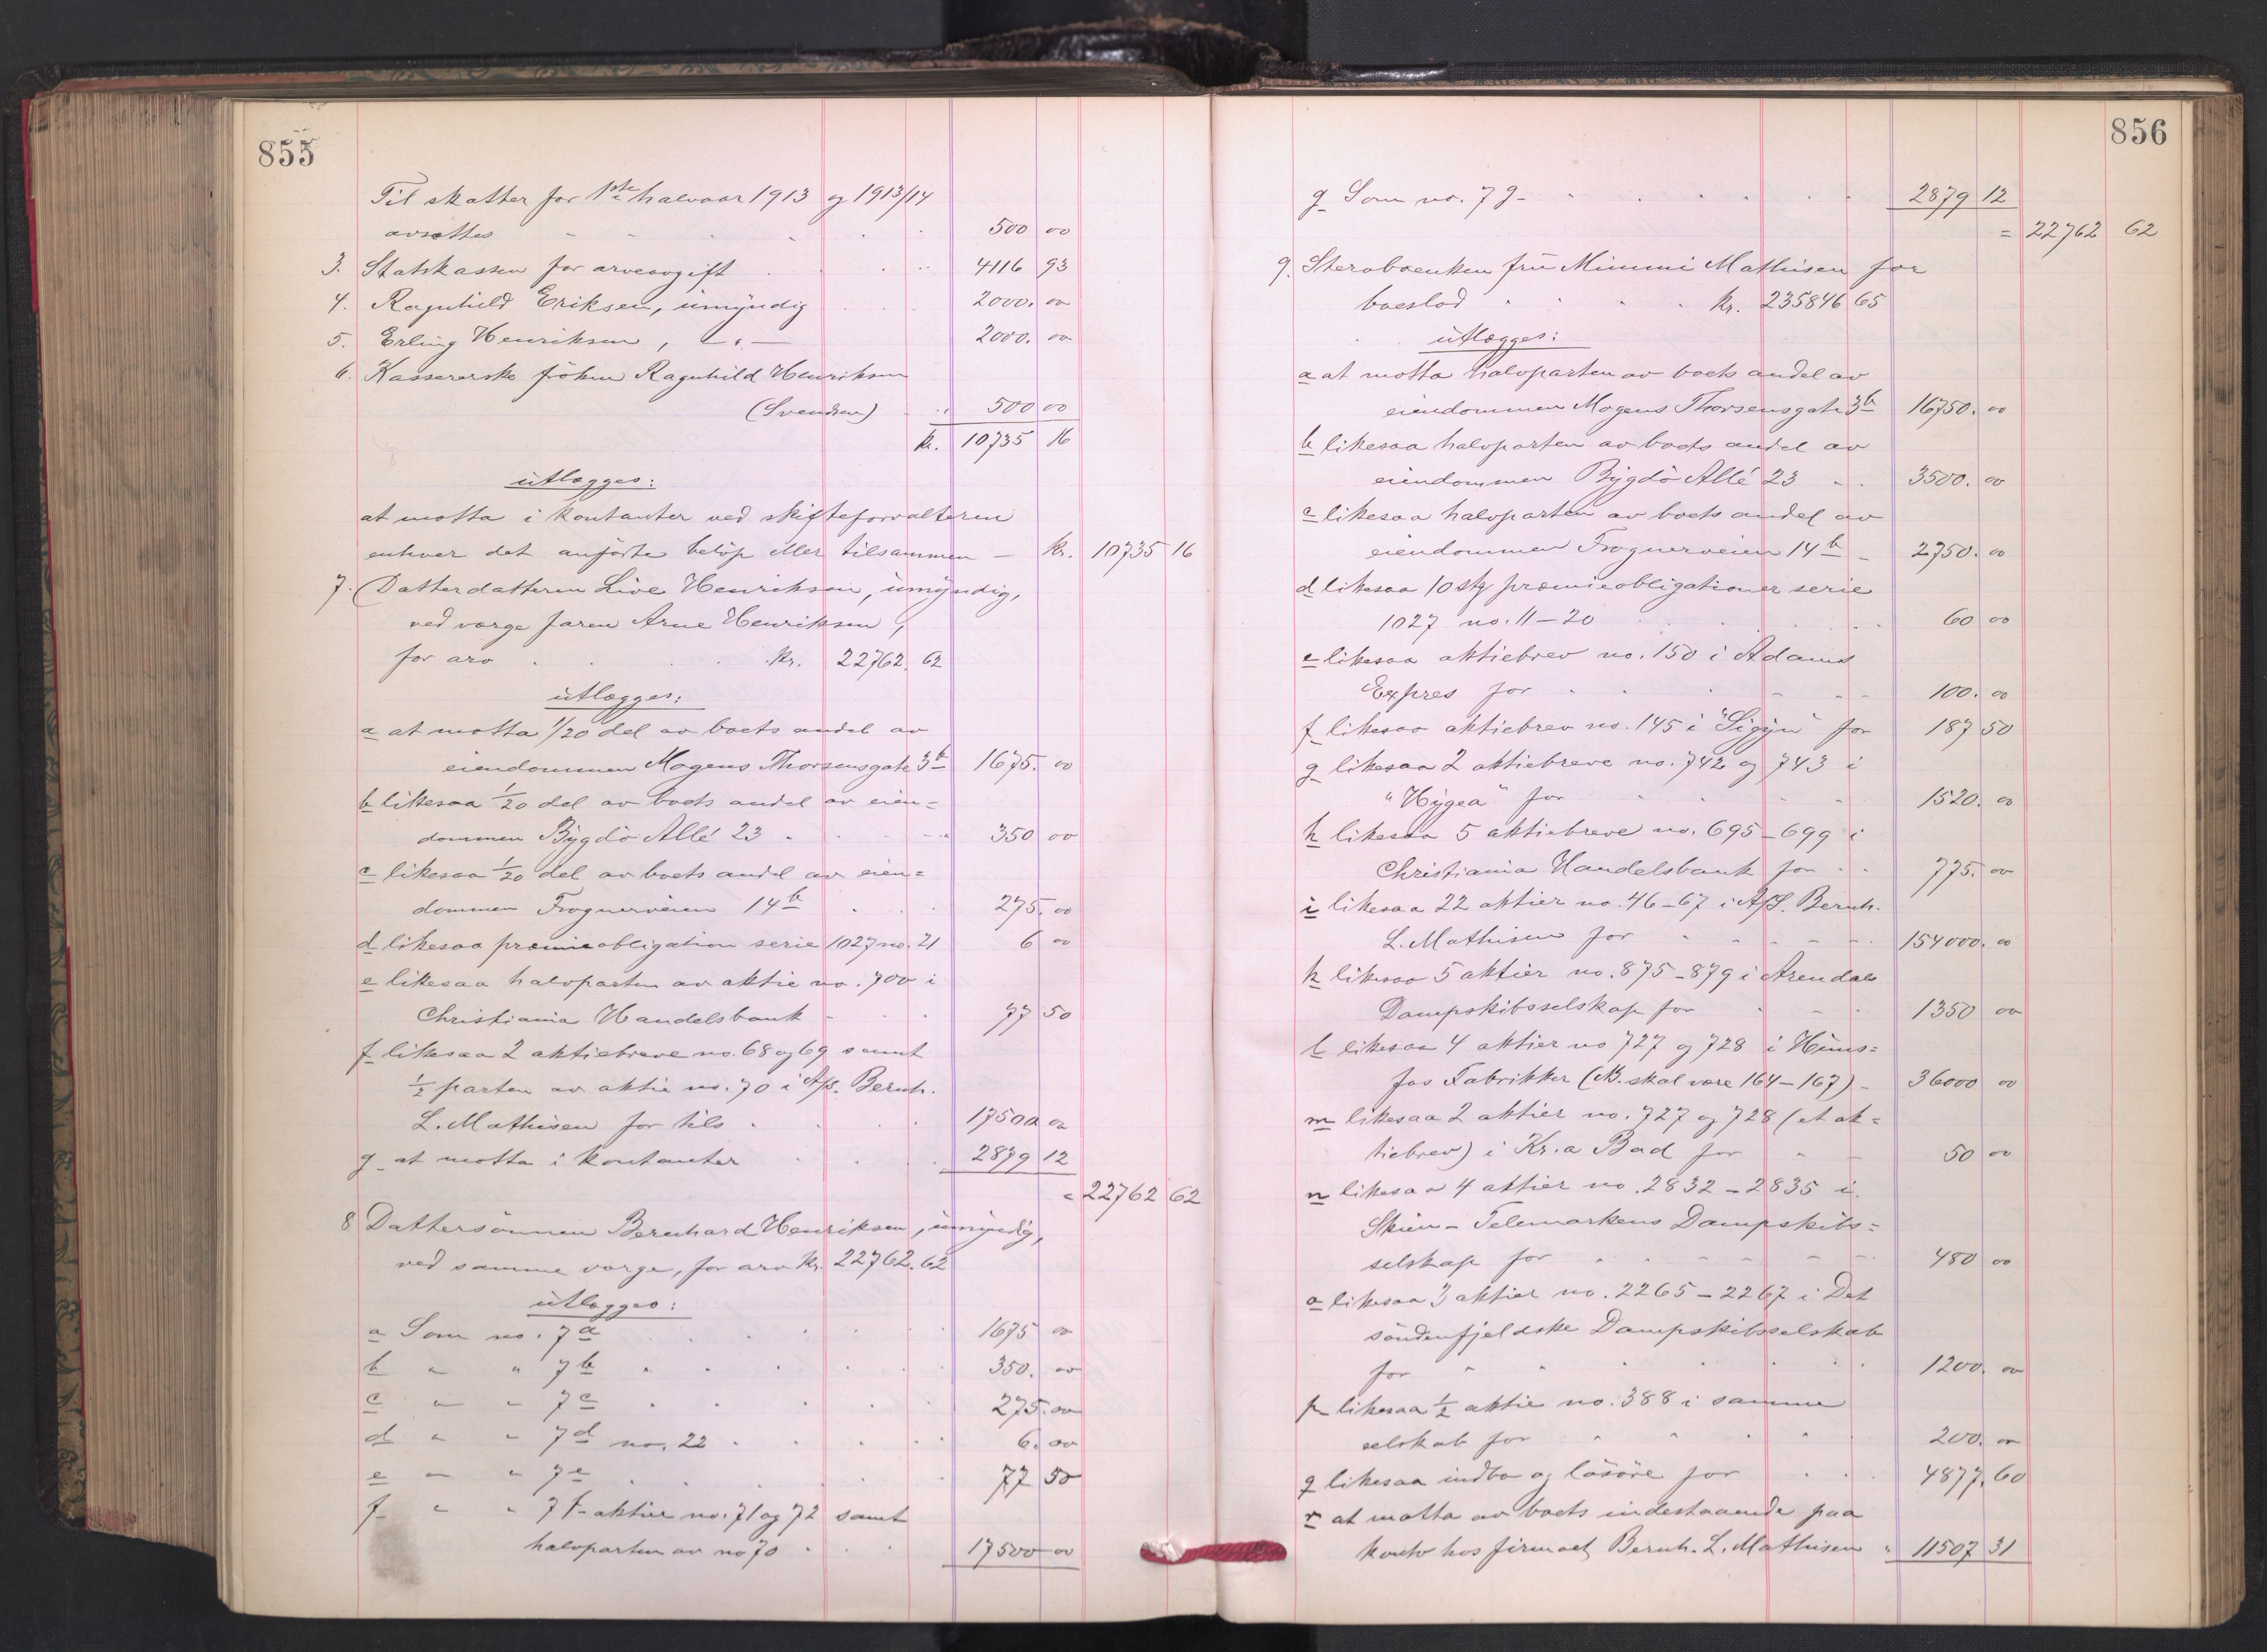 855
Til skatter for 1ste halvaar 1913 og 1913/14
avsættes 500 00
3. Statskassen for arveavgift 4116 93
4. Ragnhild Eriksen, umyndig 2000. 00
5. Erling Henriksen, —„— 2000. 00
6. Kassererske frøken Ragnhild Henriksen
(Svendsen) 500 00
kr. 10735 16
utlægges:
at motta i kontanter ved skifteforvalteren
enhver det anførte beløp eller tilsammen — kr. 10735 16
7. Datterdatteren Live Henriksen, umyndig,
ved verge faren Arne Henriksen,
for arv kr. 22762. 62
utlægges:
a at motta 1/20 del av boets andel av
eiendommen Mogens Thorsensgate 3b 1675. 00
b likesaa 1/20 del av boets andel av eien=
dommen Bygdö Allé 23 350 00
c likesaa 1/20 del av boets andel av eien=
dommen Frognerveien 14b 275. 00
d likesaa præmieobligation serie 1027 no. 21 6 00
e likesaa halvparten av aktie no. 700 i
Christiania Handelsbank 77 50
f likesaa 2 aktiebreve no. 68 og 69 samt
1/2 parten av aktie no. 70 i A/S. Bernh.
L. Mathisen for tils 17500 00
g at motta i kontanter 2879 12
= 22762 62
8 Dattersønnen Bernhard Henriksen, umyndig,
ved samme verge, for arv kr. 22762. 62
utlægges:
a Som no. 7a 1675 00
b „ „ 7b 350. 00
c „ „ 7c 275. 00
d „ „ 7d no. 22 6. 00
e „ „ 7e 77 50
f „ „ 7f aktier no. 71 og 72 samt
halvparten av no 70 17500 00
856
g Som no. 7g 2879 12
= 22762 62
9. Sterboenken fru Mimmi Mathisen for
boeslod kr. 235846 65
utlægges:
a at motta halvparten av boets andel av
eiendommen Mogens Thorsensgate 3b 16750. 00
b likesaa halvparten av boets andel av
eiendommen Bygdö Allé 23 3500. 00
c likesaa halvparten av boets andel av
eiendommen Frognerveien 14b 2750. 00
d likesaa 10 stk præmieobligationer serie
1027 no. 11–20 60 00
e likesaa aktiebrev no. 150 i Adams
Expres for 100. 00
f likesaa aktiebrev no. 145 i "Sigyn" for 187 50
g likesaa 2 aktiebreve no. 742 og 743 i
"Hygea" for 1520. 00
h likesaa 5 aktiebreve no. 695–699 i
Christiania Handelsbank for 775. 00
i likesaa 22 aktier no. 46–67 i A/S. Bernh.
L. Mathisen for 154000. 00
k likesaa 5 aktier no. 875–879 i Arendals
Dampskibsselskap for 1350 00
l likesaa 4 aktier no 727 og 728 i Huns=
fos Fabrikker (NB. skal være 164–167) 36000 00
m likesaa 2 aktier no. 727 og 728 (et ak=
tiebrev) i Kr.a Bad for 50 00
n likesaa 4 aktier no. 2832–2835 i
Skien–Telemarkens Dampskibs=
selskap for 480 00
o likesaa 3 aktier no. 2265–2267 i Det
søndenfjeldske Dampskibsselskab
for 1200. 00
p likesaa 1/2 aktie no. 388 i samme
selskab for 200. 00
q likesaa indbo og løsøre for 4877. 60
r at motta av boets indestaaende paa
konto hos firmaet Bernh. L. Mathisen „ 11507 31